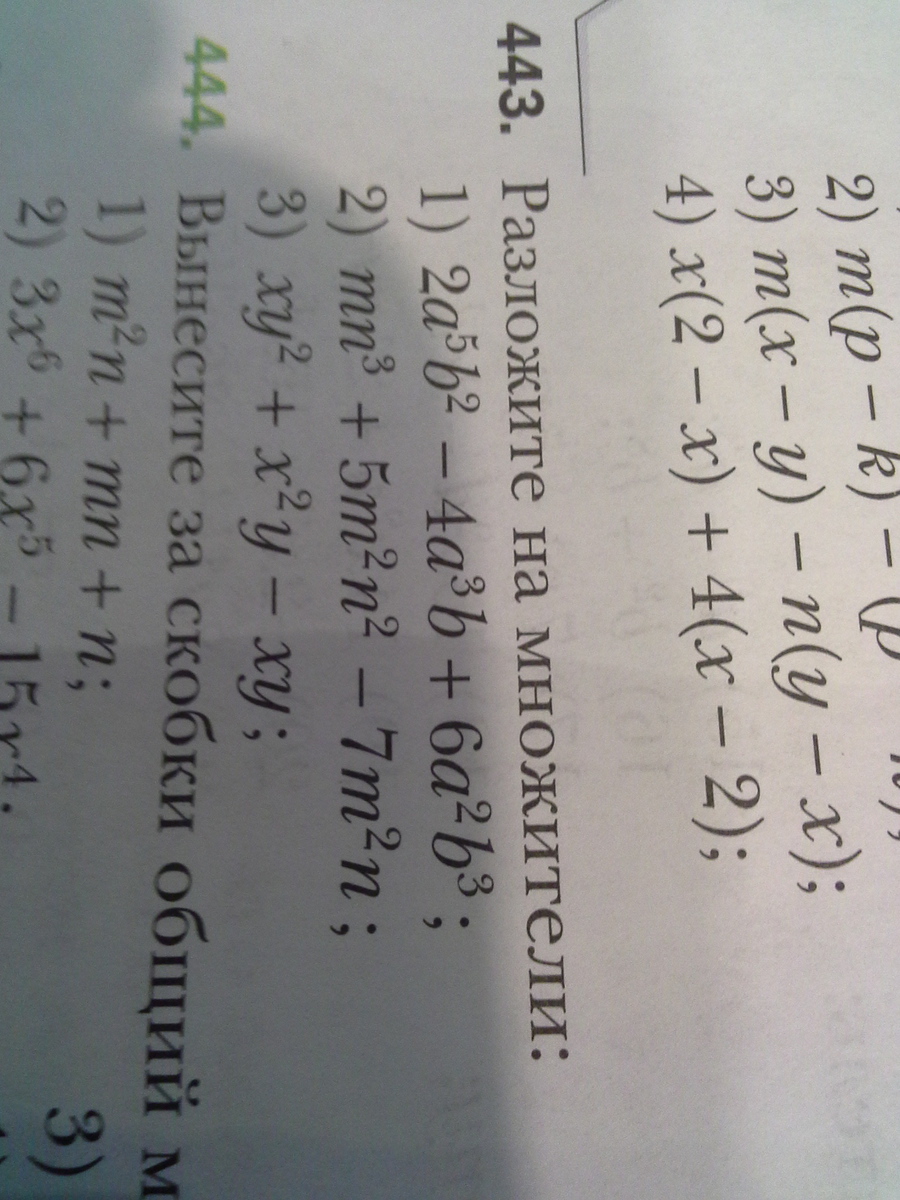 2) m(p − k) − (p
3) m(x − y) − n(y − x);
4) x(2 − x) + 4(x − 2);
443. Разложите на множители:
1) 2a⁵b² − 4a³b + 6a²b³;
2) mn³ + 5m²n² − 7m²n;
3) xy² + x²y − xy;
444. Вынесите за скобки общий м
1) m²n + mn + n;
3)
2) 3x⁶ + 6x⁵ − 15x⁴.